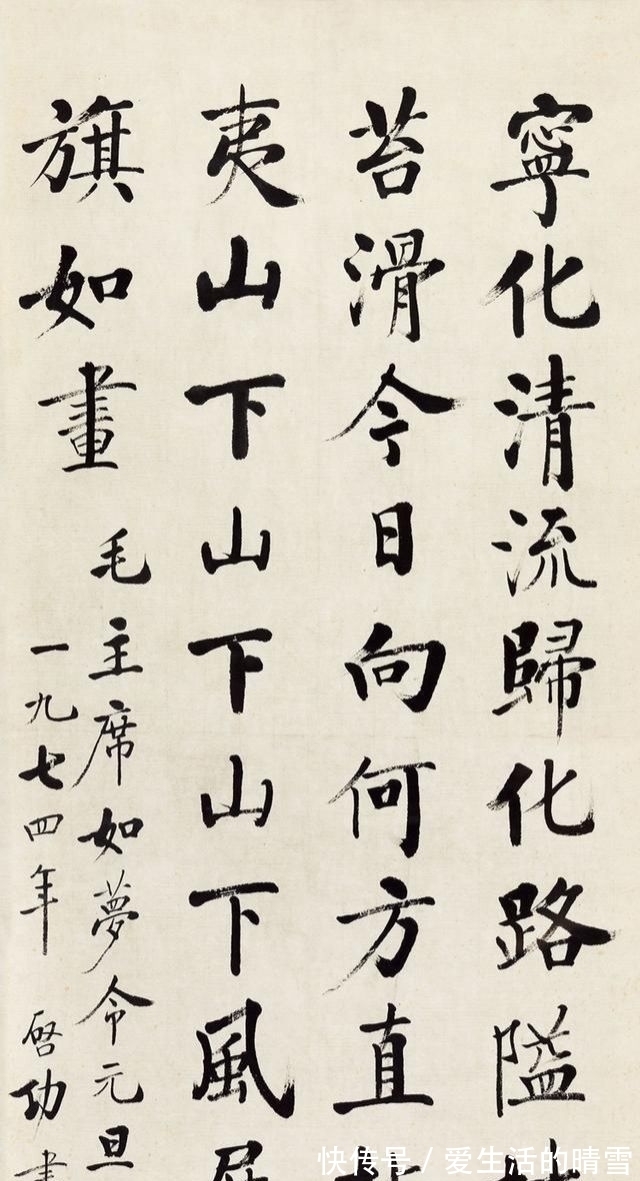 寧化清流歸化路隘
苔滑今日向何方直
夷山下山下山下風
旗如畫
毛主席如夢令元旦
一九七四年 啓功書
快传号 / 爱生活的晴雪